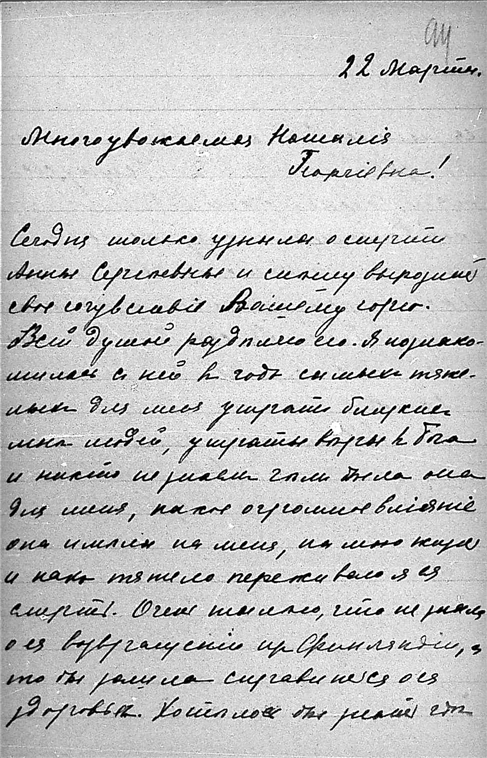 94
22 Марта.
Многоуважаемая Наталія
Георгіевна!
Сегодня только узнала о смерти
Анны Сергеевны и спѣшу выразить
свое сочувствіе Вашему горю.
Всей душой раздѣляю его. Я познако-
милась с ней в годы самых тяже-
лых для меня утраты близких
мнѣ людей, утраты вѣры в Бога
и никто не знает чѣм была она
для меня, какое огромное вліяніе
она имѣла на меня, на мою жизнь
и как тяжело переживаю я ея
смерть. Очень что не знала
о ея возвращеніи из Финляндіи, а
то бы зашла справиться о ея
здоровьѣ. Хотѣлось бы знать гдѣ